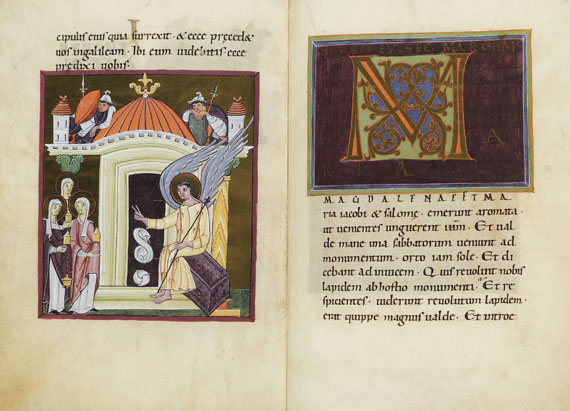 cipulis eius quia surrexit · & ecce preced&
uos in galileam · Ibi eum uidebitis · ecce
predixi uobis ·
SEC MARCUM
M
A
R I A
MAGDALENA ET MA
ria iacobi & salome · emerunt aromata ·
ut uenientes unguerent ihm · Et ual
de mane una sabbatorum ueniunt ad
monumentum · orto iam sole · Et di
cebant ad inuicem · Quis reuoluet nobis
lapidem ab hostio monumenti · Et re
spicientes · uiderunt reuolutum lapidem ·
erat quippe magnus ualde · Et introe